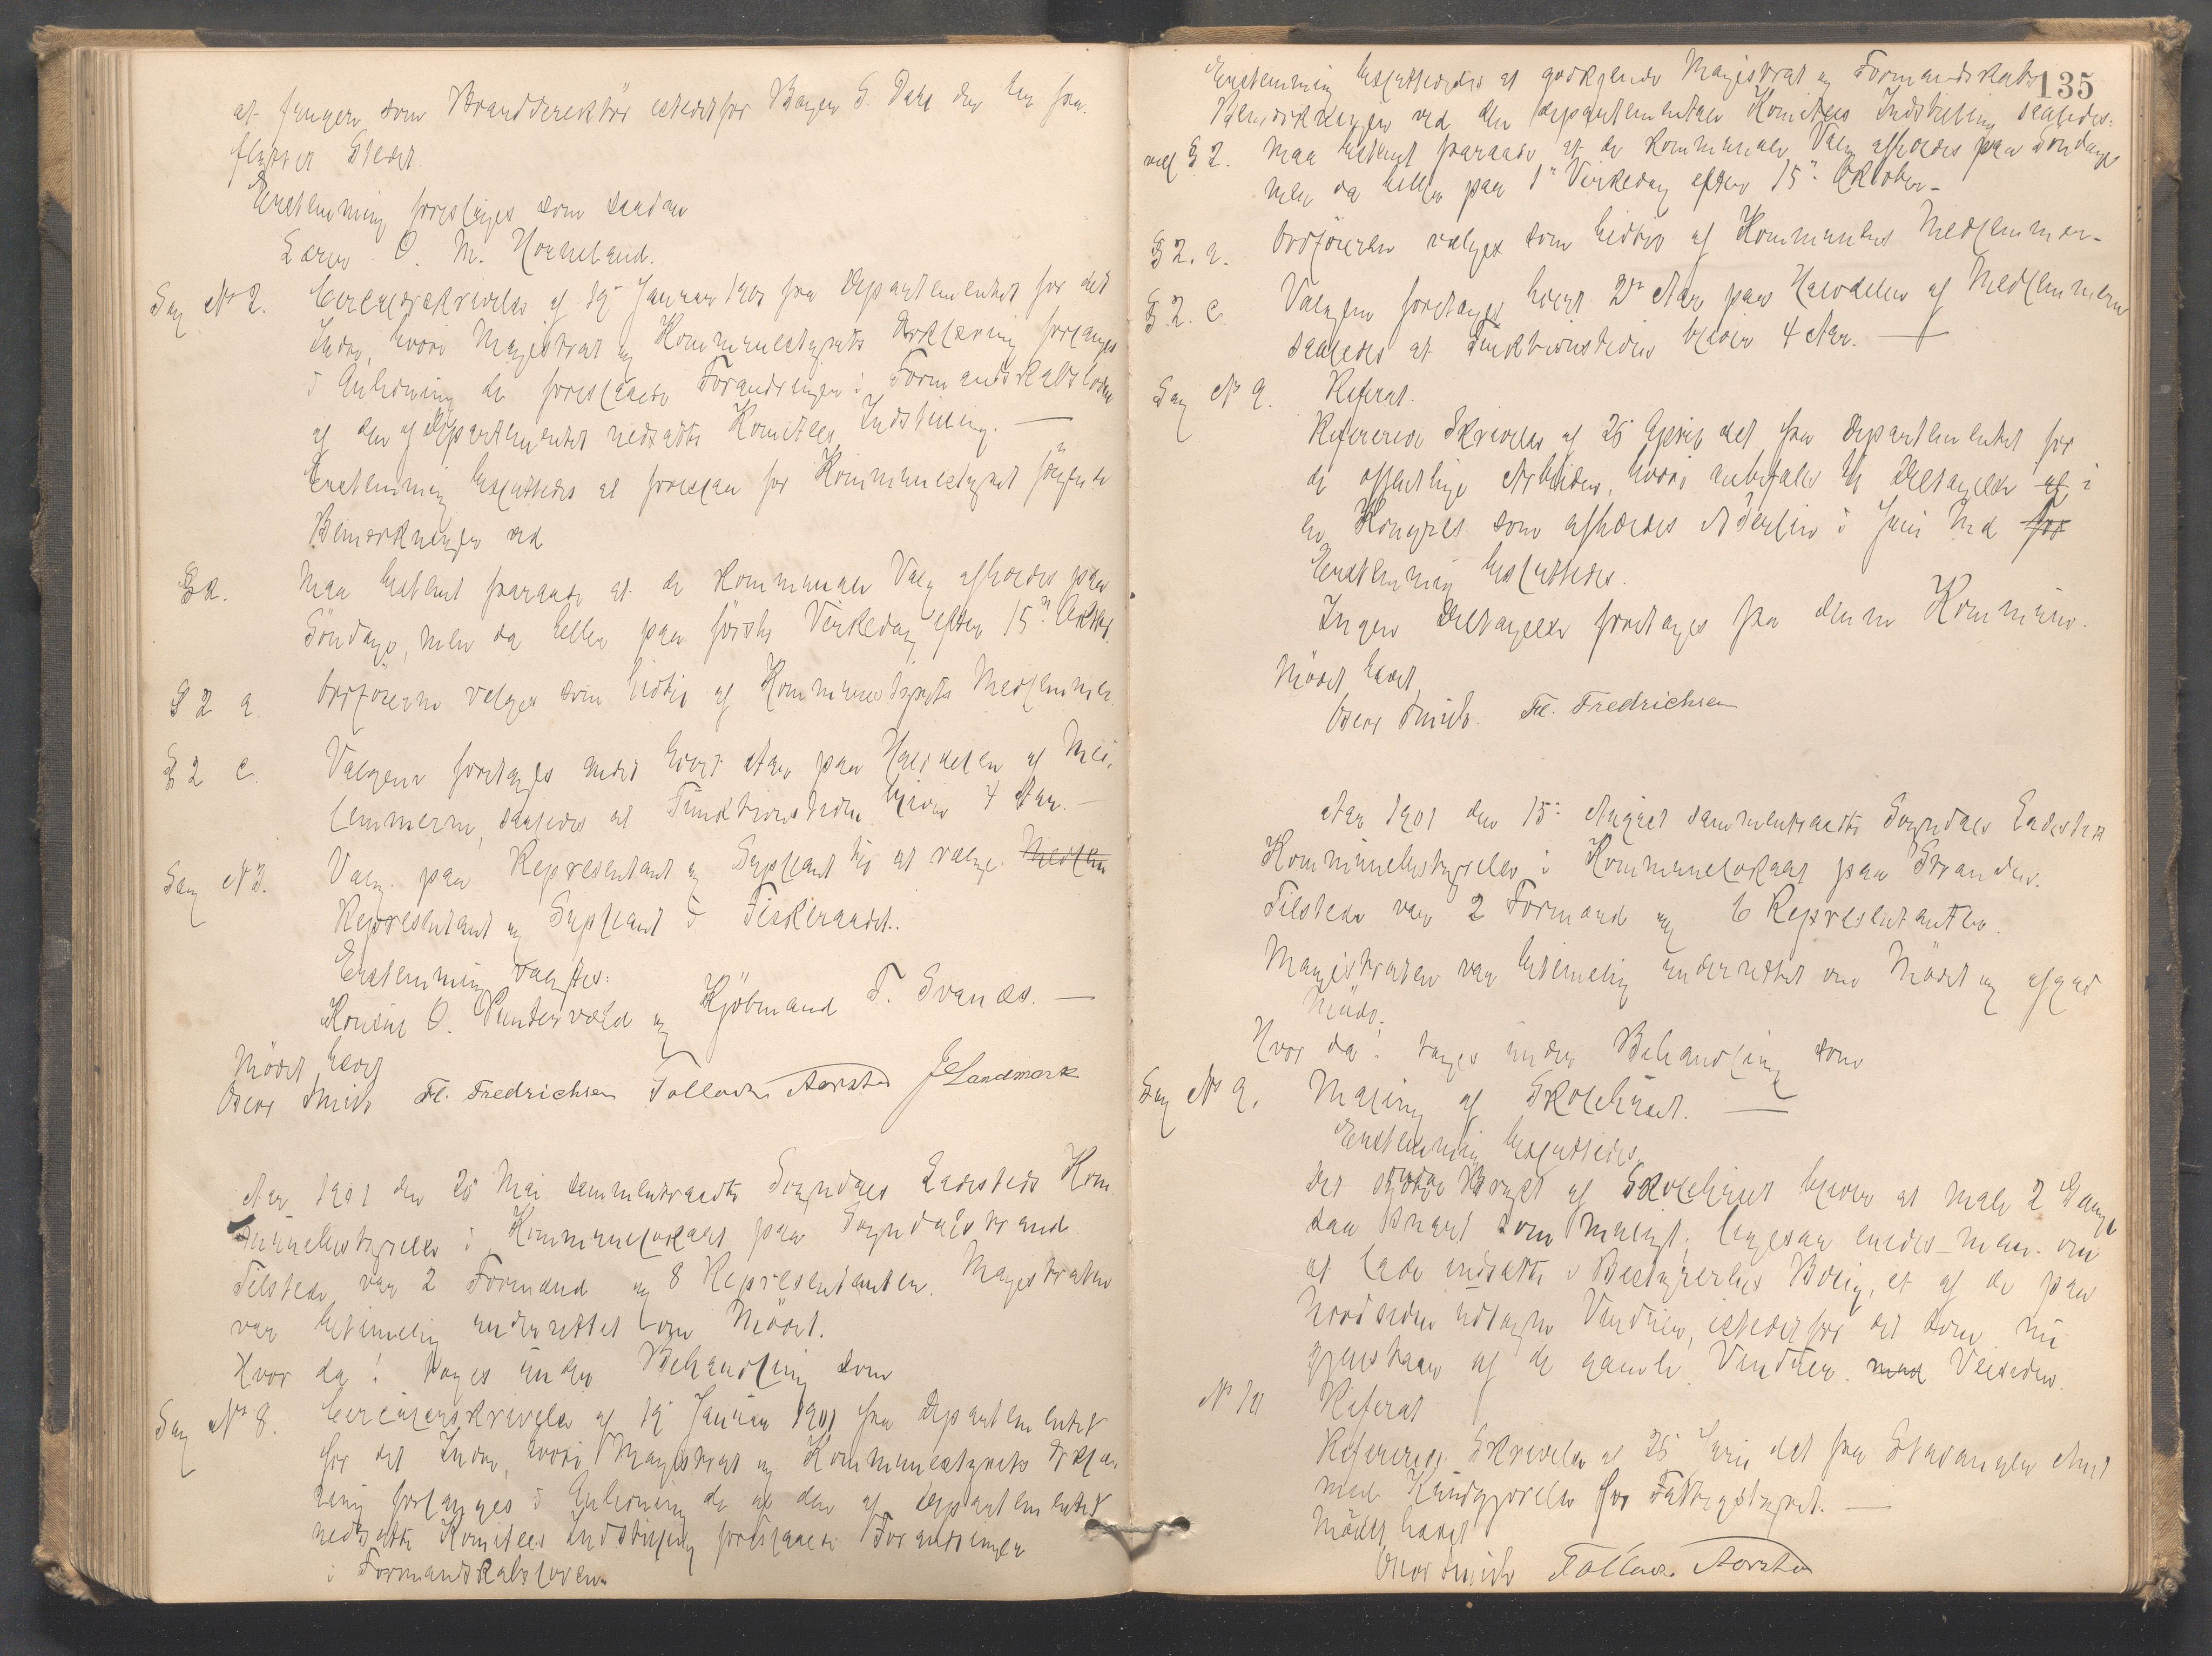 at fungere som Branddirektör istedetfor Bager S. Dahl der har fra-
flyttet Stedet.
Enstemmig foreslages som saadan
Lærer O. M. Hovland.
Sag No 2. Circulærskrivelse af 19 Januar 1901 fra Departementet for det
Indre, hvori Magistrat og Kommunestyrets Erklæring forlanges
i Anledning de foreslaaede Forandringer i Formandskabsloven
af den af Departementet nedsatte Komitees Indstilling. —
Enstemmig besluttedes at foreslaa for Kommunestyret följende
Bemærkninger ved
§ 2. Maa bestemt fraraade at de Kommunale Valg afholdes paa
Söndage, men da heller paa förste Virkedag efter 15de Oktbr.
§ 2 a. Ordförerne vælges som hidtil af Kommunestyrets Medlemmer
§ 2 c. Valgene foretages andet hvert Aar paa Halvdelen af Med-
lemmerne, saaledes at Funktionstiden bliver 4 Aar. —
Sag No 3. Valg paa Representant og Supleant til at vælge Medlem
Representant og Supleant i Fiskeraadet..
Enstemmig valgtes:
Konsul O. Puntervold og Kjöbmand T. Svanes. —
Mödet hævet
Oscar Smith Fr. Fredrichsen Tollack Aarstad J Landmark
Aar 1901 den 28 Mai sammentraadte Sogndals Ladesteds Kom
munebestyrelse i Kommunelokalet paa Sogndalstrand
Tilstede var 2 Formænd og 8 Representanter. Magistraten
var betimelig underrettet om Mödet.
Hvor da! toges under Behandling som
Sag No 8. Circulærskrivelse af 19 Januar 1901 fra Departementet
for det Indre, hvori Magistrat og Kommunestyrets Erklæ-
ring forlanges i Anledning de af den af Departementet
nedsatte Komitees Indstilling foreslaaede Forandringer
i Formandskabsloven.
135
Enstemmig besluttedes at godkjende Magistrat og Formandskabets
Bemærkninger ved den departementale Komitees Indstilling saaledes:
ved § 2. Maa bestemt fraraade at de Kommunale Valg afholdes paa Söndage
men da heller paa 1te Virkedag efter 15de Oktober-
§ 2. a. Ordföreren vælges som hidtil af Kommunens Medlemmer-
§. 2. c. Valgene foretages hvert 2det Aar paa Halvdelen af Medlemmerne
saaledes at Funktionstiden bliver 4 Aar. —
Sag No 9. Referat.
Refereret Skrivelse af 26 April dst fra Departementet for
de offentlige Arbeider, hvori anbefales til Deltagelse af i
en Kongres som afholdes i Berlin i Juni Md for
Enstemmig besluttedes.
Ingen Deltagelse foretages fra denne Kommune.
Mödet hævet
Oscar Smith. Fr. Fredrichsen
Aar 1901 den 15de August sammentraadte Sogndals Ladesteds
Kommunebestyrelse i Kommunelokalet paa Stranden.
Tilstede var 2 Formænd og 6 Representanter.
Magistraten var betimelig underrettet om Mödet og afgav
Möde.
Hvor da! toges under Behandling som
Sag No 9. Maling af Skolehuset. —
Enstemmig besluttedes,
Det Bryst af Skolehuset bliver at male 2 Gange
saa snart som muligt; ligesaa enedes man om
at lade indsætte i Bestyrerens Bolig, et af de paa
Nordsiden udtagne Vinduer, istedetfor det som nu
gjenstaar af de gamle Vinduer mod Veisiden.
No 10 Referat
Refereret Skrivelse af 26 Juni dst fra Stavanger Amt
med Kundgjörelse for Fattigstyret. —
Mödet hævet
Oscar Smith Tollack Aarstad